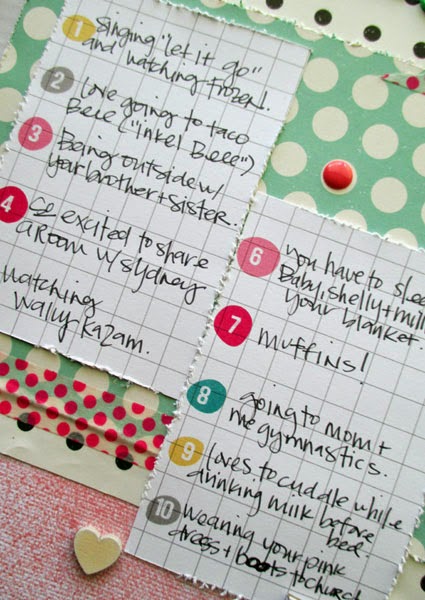 1 Singing "let it go"
and watching Frozen!
2 Love going to taco
Bell ("inkel Beee")
3 Being outside w/
your brother + sister.
4 so excited to share
a Room w/ sydney
watching
wally kazam.
6 you have to slee
Baby, shelly + mil
your blanket.
7 muffins!
8 going to mom +
me gymnastics.
9 loves to cuddle while
drinking milk before
bed.
10 wearing your pink
dress + boots to church